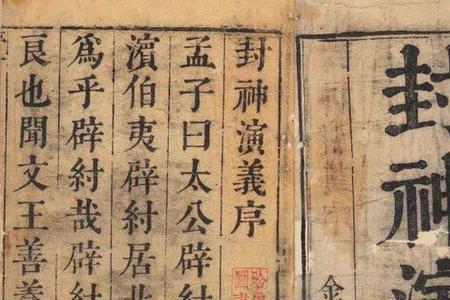 封神演
金
封神演義序
孟子曰太公辟紂
濱伯夷辟紂居北
爲乎辟紂哉辟紂
良也聞文王善養